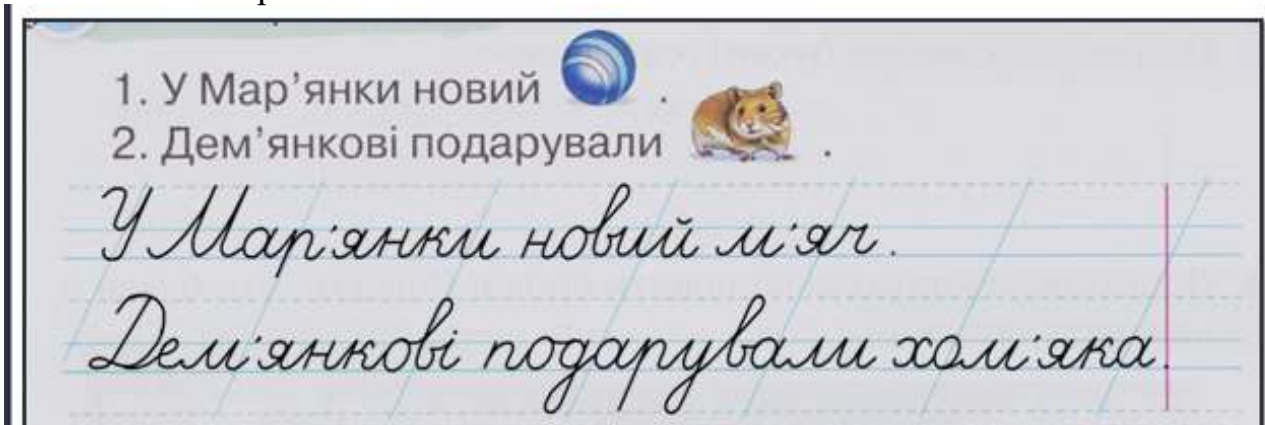 1. У Мар’янки новий .
2. Дем’янкові подарували .
У Мар’янки новий м’яч.
Дем’янкові подарували хом’яка.